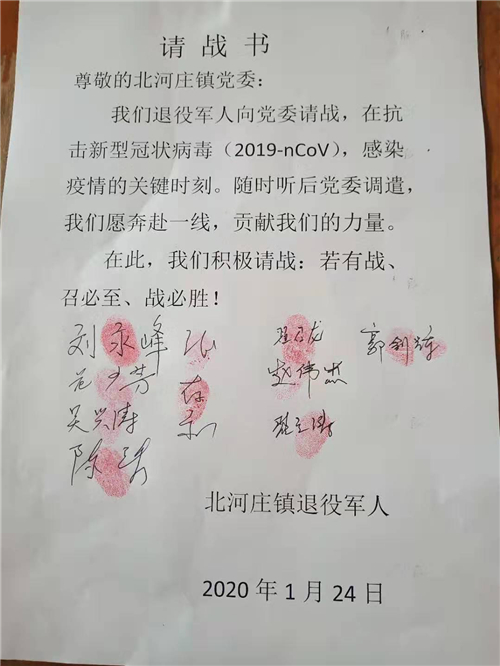 请战书
尊敬的北河庄镇党委：
我们退役军人向党委请战，在抗
击新型冠状病毒（2019-nCoV），感染
疫情的关键时刻。随时听后党委调遣，
我们愿奔赴一线，贡献我们的力量。
在此，我们积极请战：若有战、
召必至、战必胜！
刘永峰
赵伟杰
吴兴涛
北河庄镇退役军人
2020年1月24日